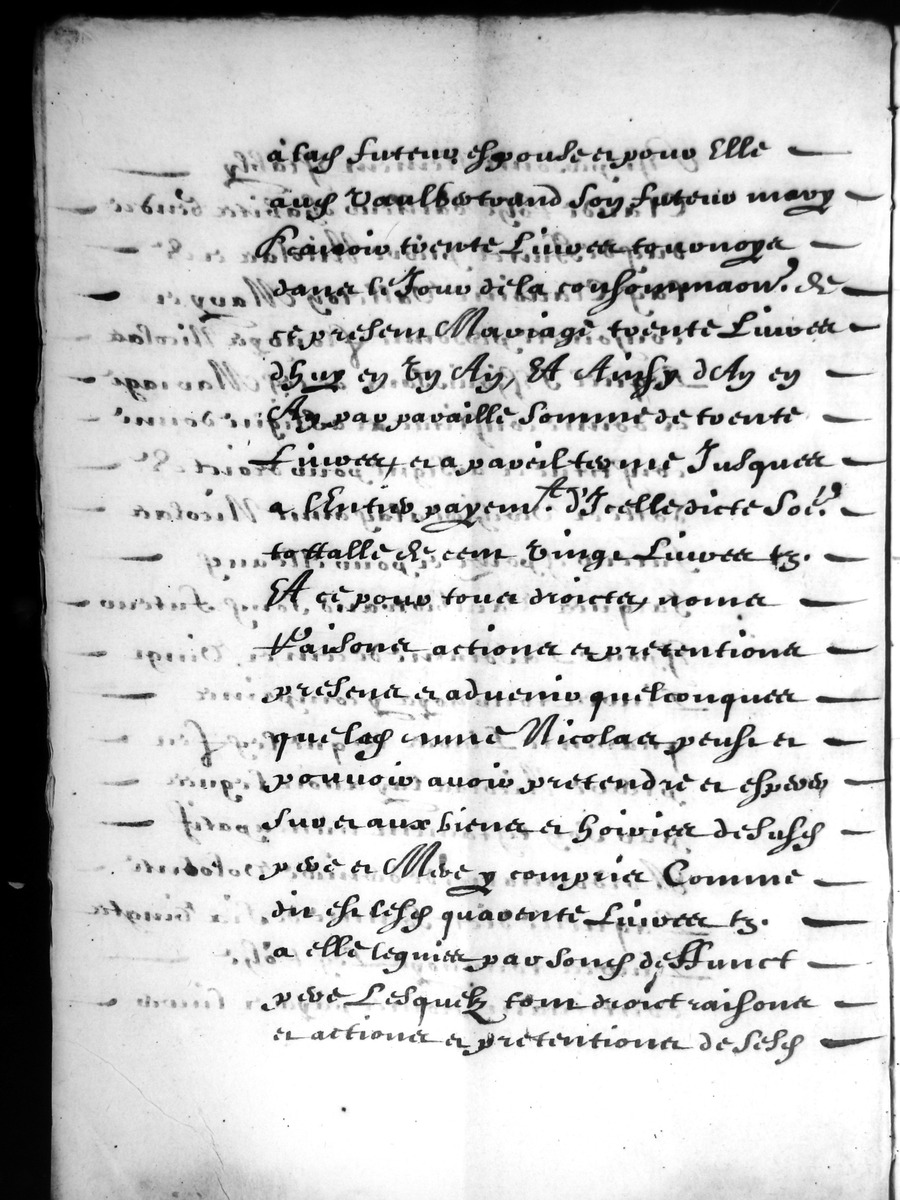 a lad future espouse et pour Elle
aud Vaalbertrand Son futeur mary
Scauoir trente Liures tournoys
dans le Jour de la consommaon. de
ce present Mariage, trente Liures
dhuy en Vn An, Et Ainsy dAn en
An par pareille Somme de trente
Liures, et a pareil terme Jusques
a lEntier payemt. dIcelle dicte Soe.
tottalle de cent Vingt Liures tz.
Et ce pour tous droictz, noms
Raisons actions et pretentions
presens et aduenir quelconques
que lad Nicolas peust et
pouuoir auoir pretendre et esperer
Sur et aux biens et hoiries de Susd
pere et Mere y compris Comme
dit est lesd quarente Liures tz.
a elle leguies par Sond deffunct
pere Lesquelz tout droict raisons
et actions et pretentions de Sesd